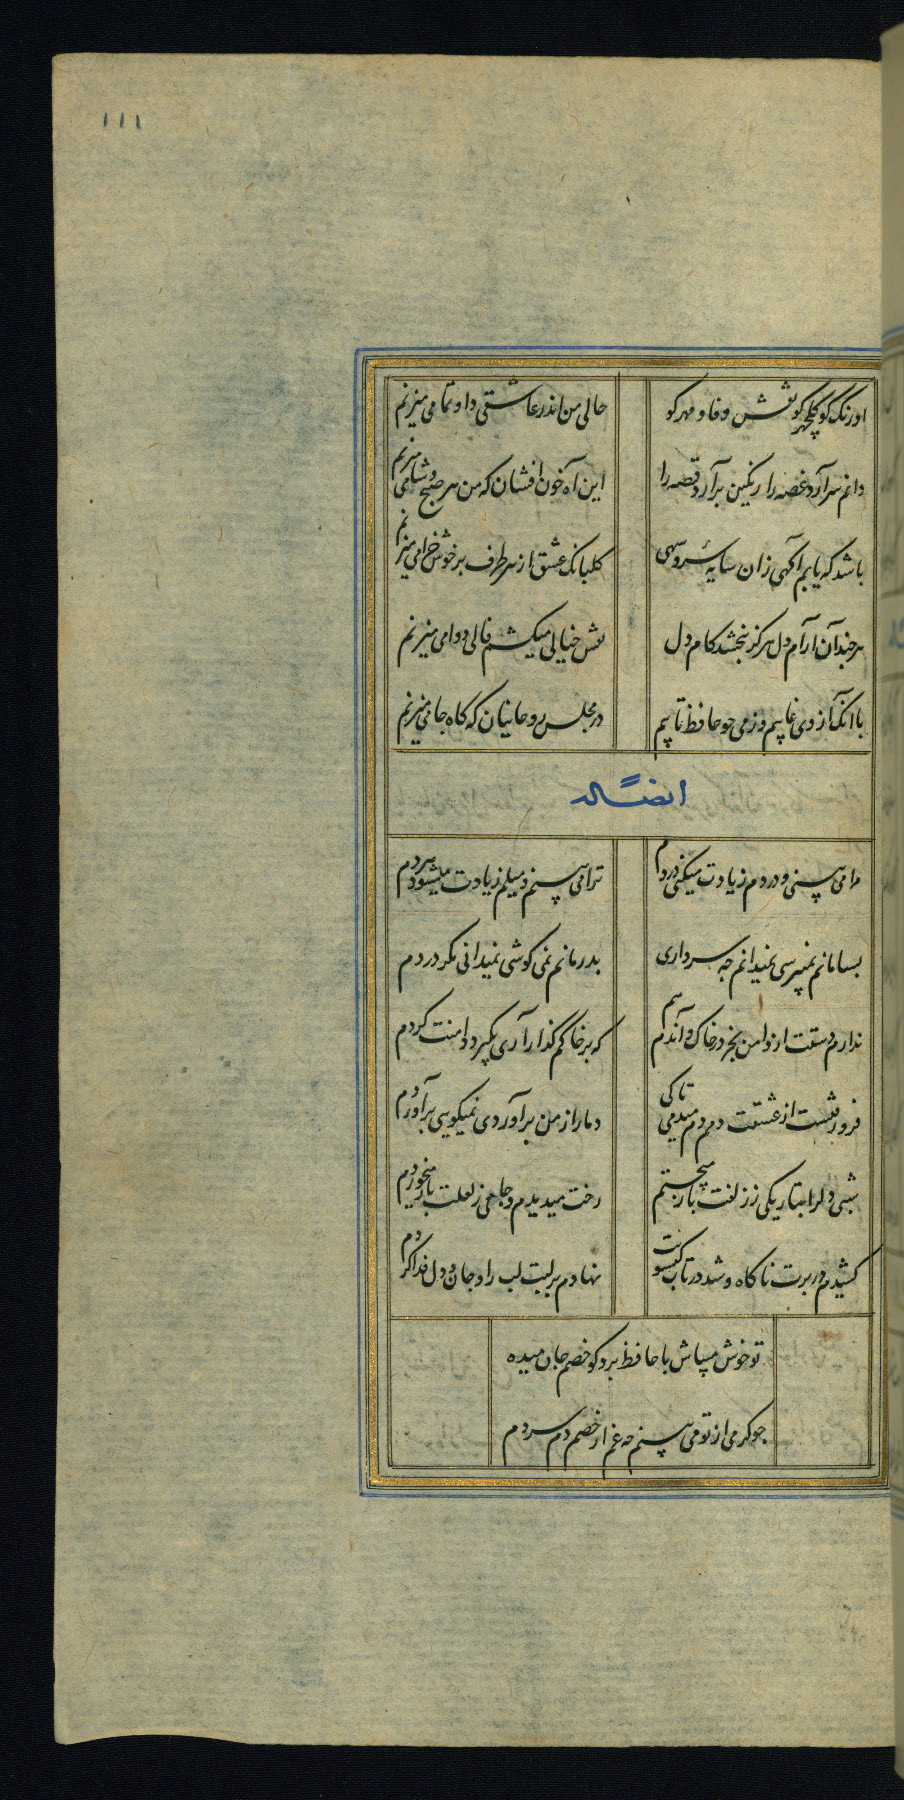 ۱۱۱
اورنگ کو گلچهر کو نقش وفا و مهر کو
حالی من اندر عاشقی داو تمامی میزنم
دانم سر آرد غصه را رنگین برآرد قصه را
این آه خون افشان که من هر صبح و شامی میزنم
باشد که یابم آکهی زان سایهٔ سرو سهی
کلبانک عشق از هر طرف بر خوش خرامی میزنم
هر چند آن آرام دل هرکز نبخشد کام دل
نقش خیالی میکشم فالی دوامی میزنم
با آنک از وی غایبم وز می چو حافظ تایبم
در مجلس روحانیان که کاه جامی میزنم
ایضاً له
مرا می بینی و دردم زیادت میکنی دردم
ترا می بینم و میلم زیادت میشود هر دم
بسامانم نمیپرسی نمیدانم چه سر داری
بدرمانم نمی کوشی نمیدانی مکر دردم
ندارم دستت از دامن بجز در خاک و آن دم هم
که بر خاکم کذار آری بگیرد دامنت کردم
فرو رفت از غم عشقت دمم دم میدمی تا کی
دمار از من برآوردی نمیکویی برآوردم
شبی دل را بتاریکی ز زلفت باز میجستم
رخت میدیدم و جامی ز لعلت باز میخوردم
کشیدم در برت ناکاه و شد در تاب کیسویت
نهادم بر لبت لب را و جان و دل فدا کردم
تو خوش میباش با حافظ برو کو خصم جان میده
چو کرمی از تو می بینم چه غم از خصم دم سردم